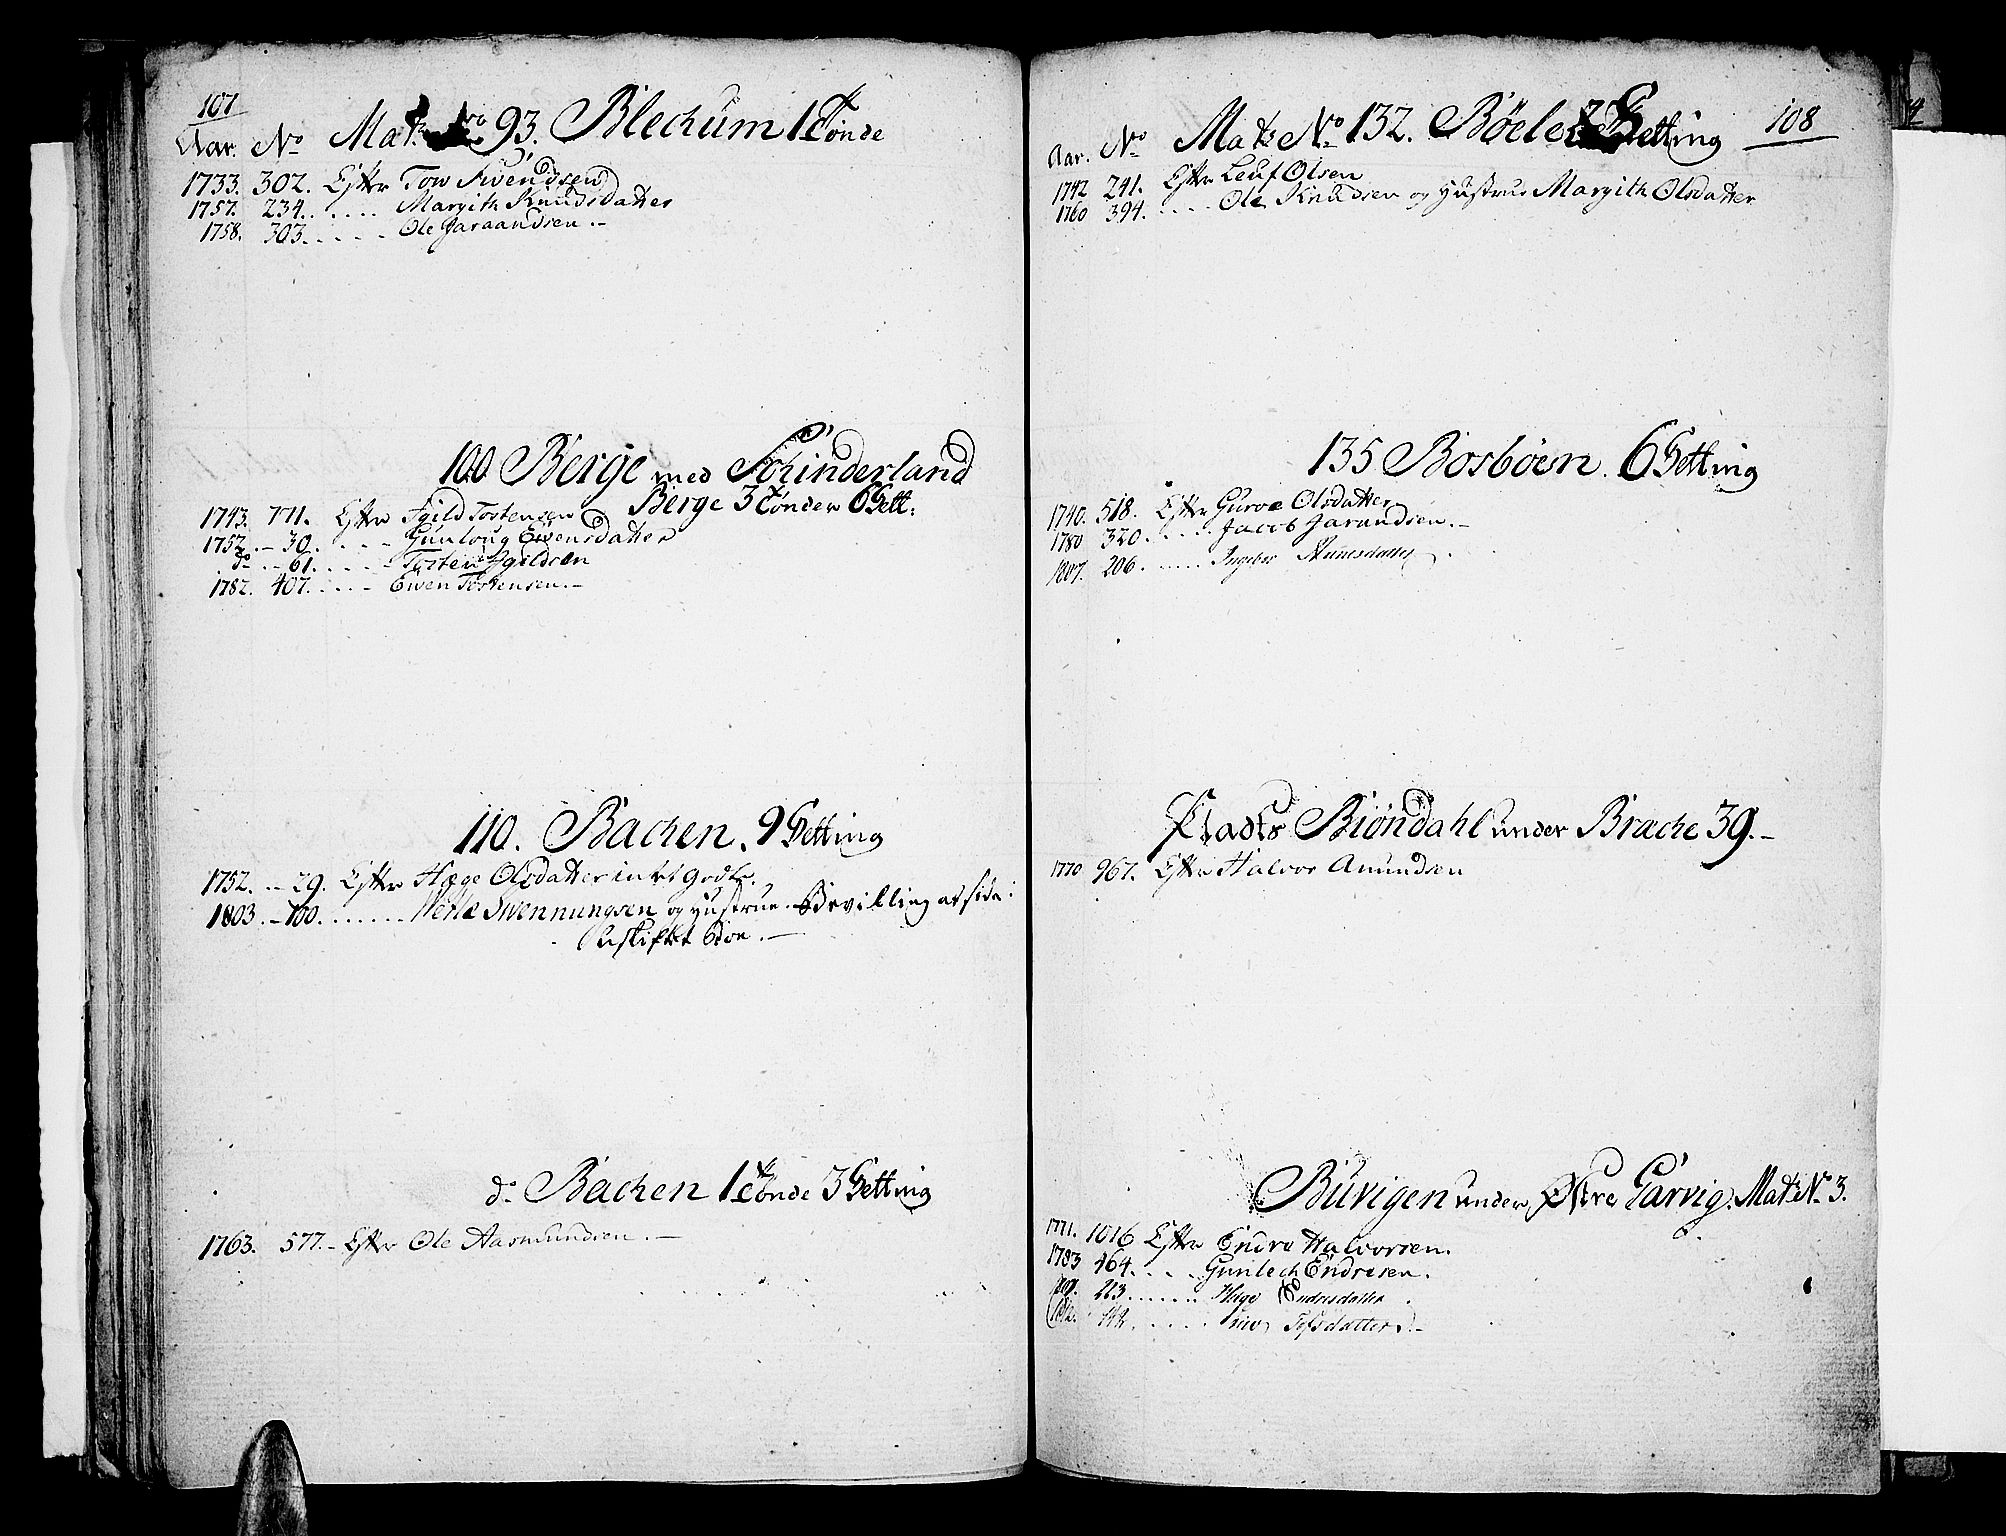 107
Aar. No Matr No 93. Blechum 1 Tønde
1733. 302. Efter Tow Swendsen
1757. 234. . . . . . Margith Knudsdatter
1758. 303. . . . . Ole Jaraandsen. -
100 Berge med Schinderland
Berge 3 Tønder 6 Sett:
1743. 771. Efter Sgild Tostensen
1752. - 30. . . . - Gunloug Ewensdatter
do - - 61. . . . . - Tosten Sgildsen
1782. 407. . . . - Ewen Tostensen. -
110. Bachen. 9 Setting
1752. - 29. Efter Hæge Olsdatter intet Godtr.
1803. - 100. . . . . . . Swennungsen og Hustrue. Bevilling at side i
Uskiftet Boe. -
do Bachen 1 Tønde 3 Setting
1763. 577. - Efter Ole Aasmundsen. -
108
Aar. No Matr No 132. Bøele Setting
1742 241. Efter Leuf Olsen
1760 394. . . . . Ole Knudsen og Hustrue Margith Olsdatter
135 Bosbøen. 6 Setting
1740. 518. Efter Guroe Olsdatter
1780 320. . . . . . Jacob Jarandsen. -
1807. 206. . . . . . Ingebor
Plads Biøndahl under Brache 39. -
1770 967. Efter Halvor Amundsen
Buvigen under Østre Garvig. Matr No 3.
1771. 1016 Efter Endre Halvorsen.
1783 464. . . . . Gunlech Endresen.
213. . . . . . . Hæge Endresdatter.
. . . . . .